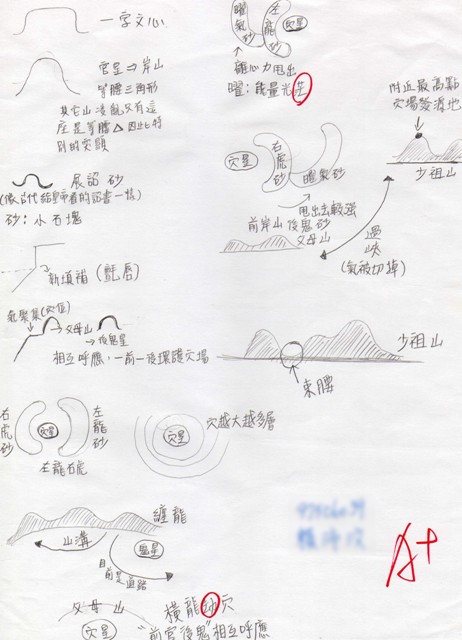 一字文心
官星⇒岸山
等腰三角形
其它山凌亂只有這
座是等腰△因此特
別的突顯
展誥砂
(像古代給皇帝看的詔書一樣)
砂:小石塊
新填補(氈唇)
氣聚集(穴位)
父母山
後鬼星
相互呼應,一前一後環護穴場
右虎砂
穴星
左龍砂
左龍右虎
穴星
穴越大越多層
纏龍
山溝
穴星
前是道路
父母山
穴星
橫龍納穴
"前官後鬼"相互呼應
曜氣砂
左龍砂
穴星
離心力甩出
曜:能量光芒
穴星
右虎砂
曜氣砂
甩出去較強
附近最高點
穴場發源地
少祖山
前岸山後鬼砂
父母山
過峽
(氣被切掉)
少祖山
束腰
A+